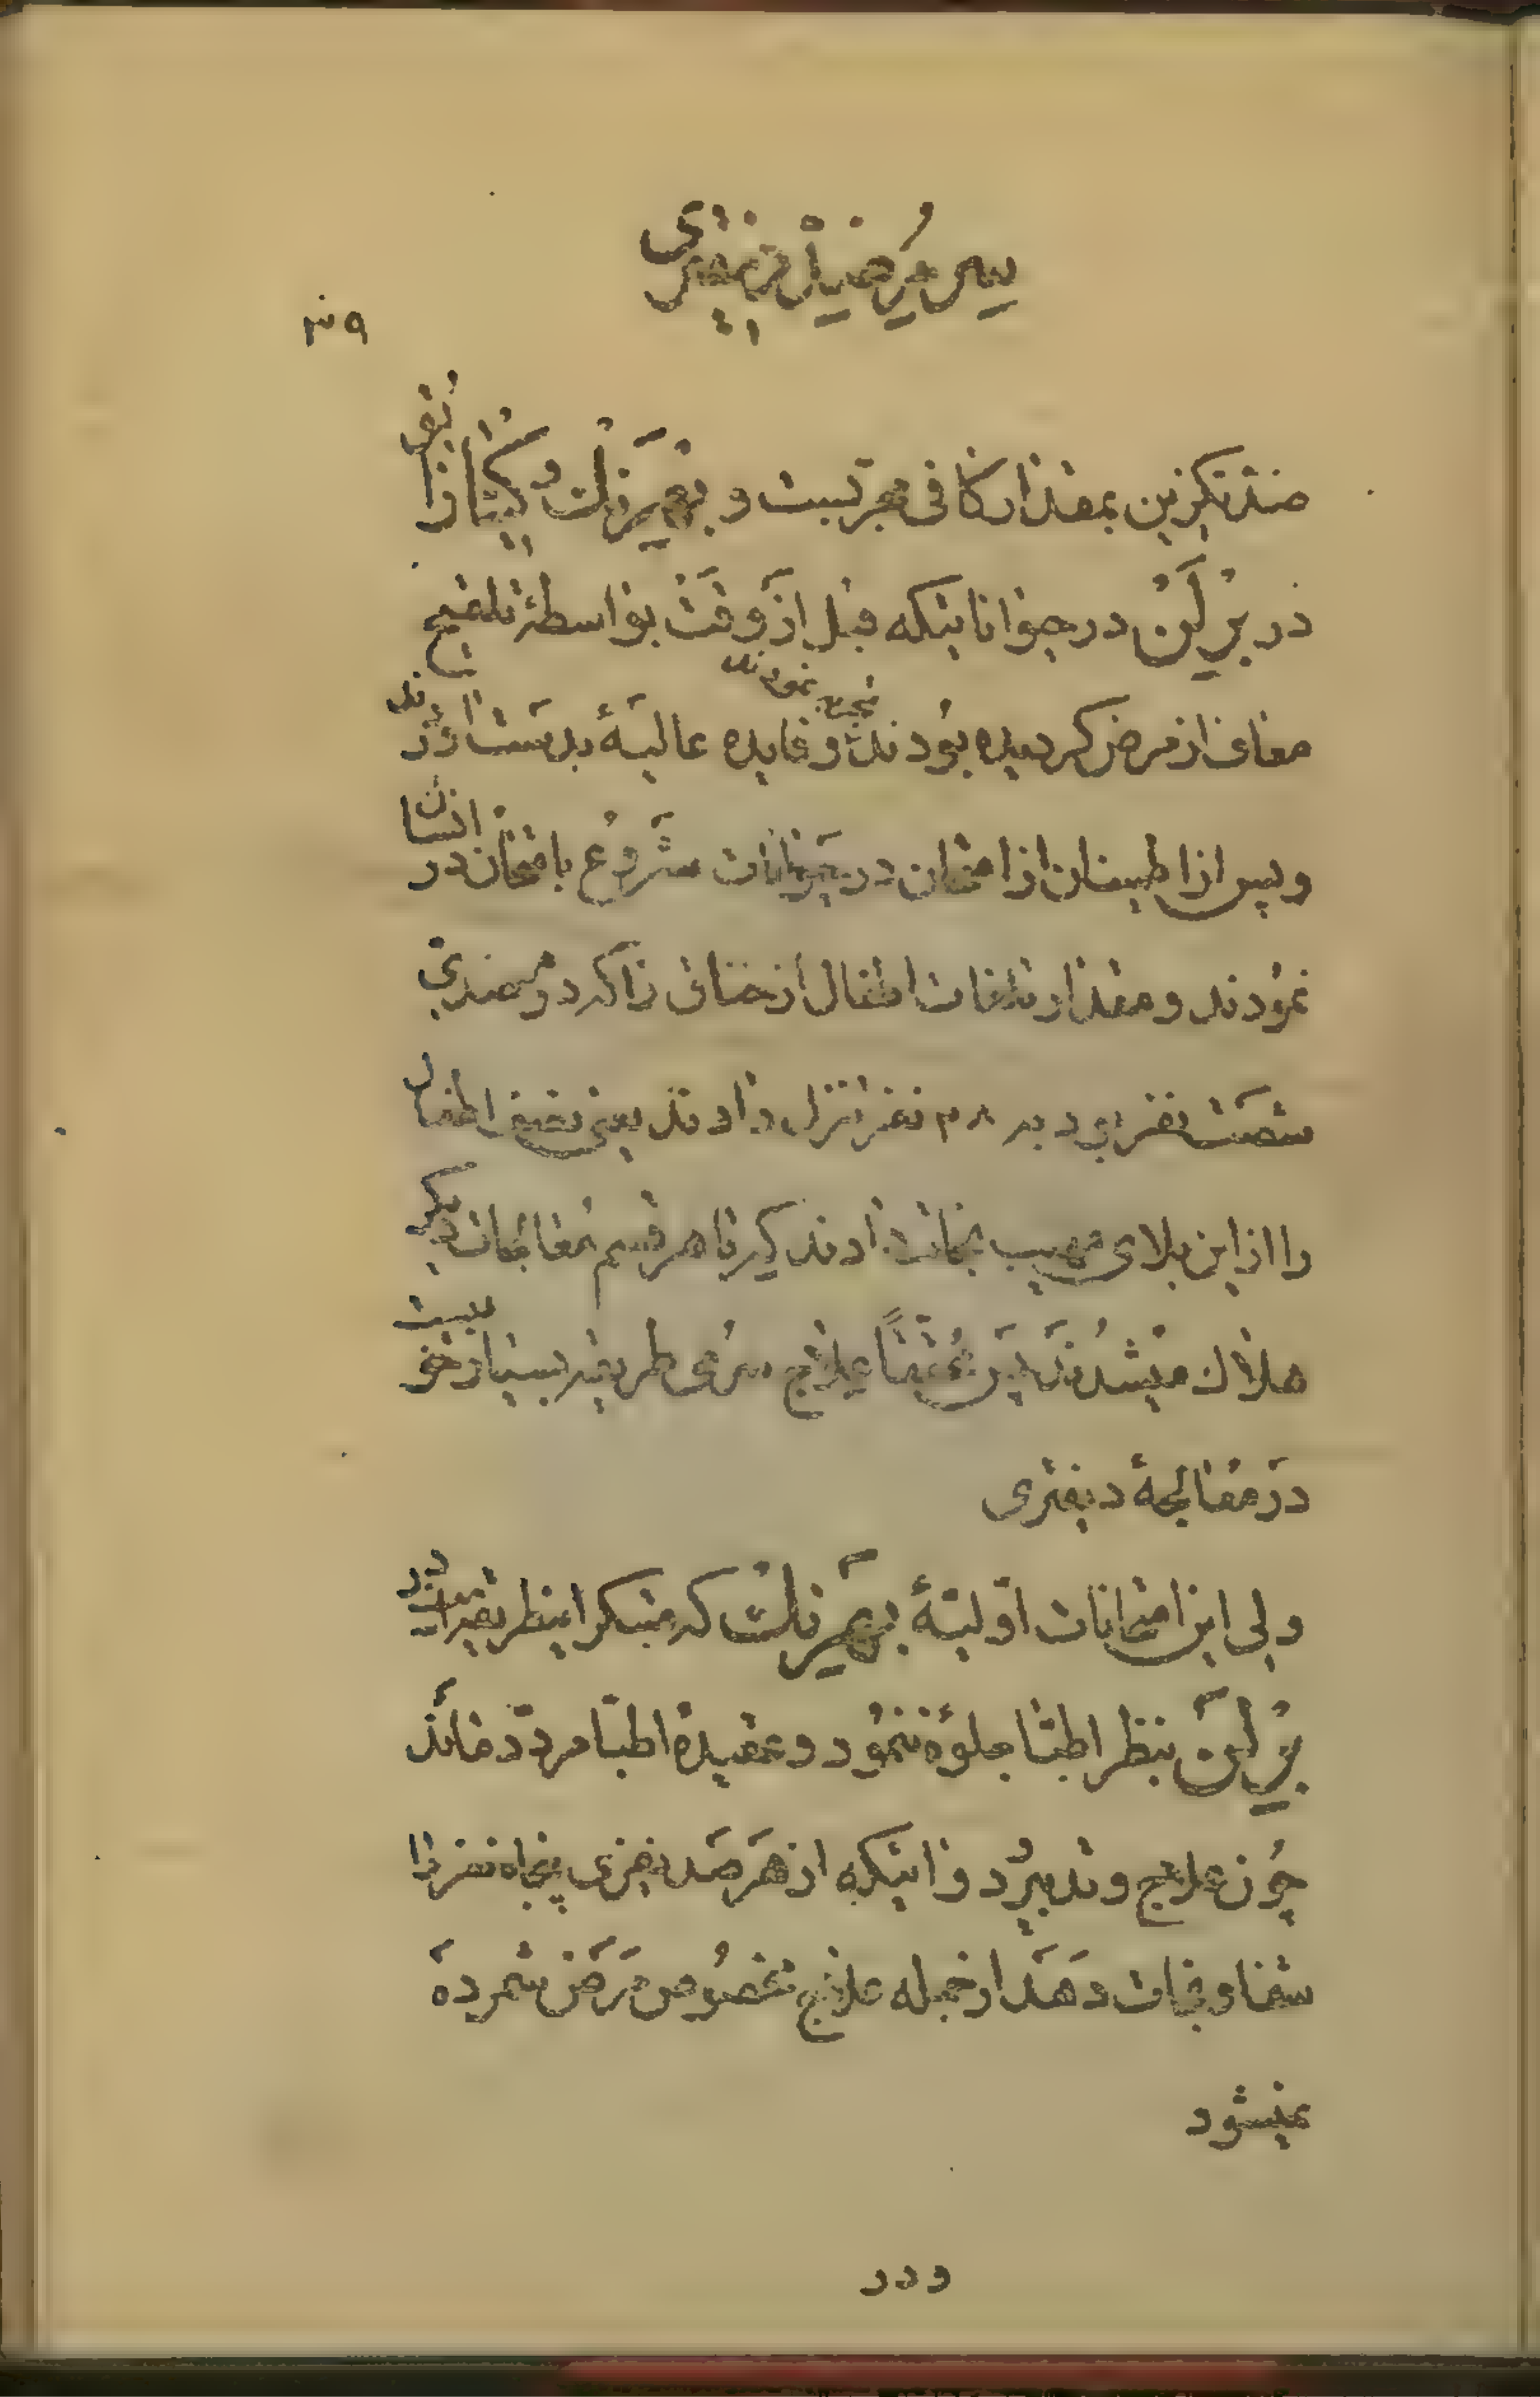 سرم ضد دیفتری
ضد تکزین بمقدار کافی مجرتیست و بهرنگ و کیتازاتو
در برلن در حیواناتیکه قبل از وقت بواسطهٔ تلقیح
معاف از مرض کردیده بودند تجربه نمودند و فایده عالیهٔ بدست اوردند
و پس از اطمینان از امتحان در حیوانات شروع بامتحان در انسان
نمودند و مقدار تلفات اطفال از خناق را که در هر صدی
شصت نفر بود به نفر تنزل دادند یعنی نصف اطفال
را از این بلای مهیب نجات دادند که با هر قسم معالجات دیگر
هلاک میشدند پس یقینا علاج سرمی طریقه بسیار خوبیست
در معالجهٔ دیفتری
ولی این امتحانات اولیهٔ بهرنگ که مبتکر اینطریقه است در
برلن بنظر اطبا جلوه ننمود و عقیدهٔ اطبا مردد ماند
چون علاج و تدبیر و دوائیکه از هر صد نفری پنجاه نفر را
شفا و نجات دهد از جمله علاج مخصوص مرض شمرده
نمیشود
و در